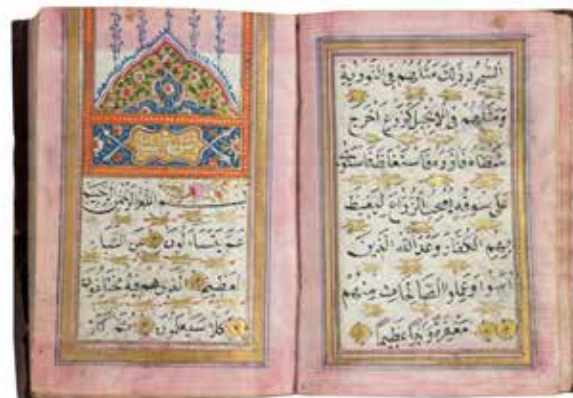 السجود ذلك مثلهم في التورية
ومثلهم في الانجيل كزرع اخرج
شطئه فازره فاستغلظ فاستوى
على سوقه يعجب الزراع ليغيظ
بهم الكفار وعد الله الذين
امنوا وعملوا الصالحات منهم
مغفرة واجرا عظيما
بسم الله الرحمن الرحيم
عم يتساءلون عن النبا
العظيم الذي هم فيه مختلفون
كلا سيعلمون ثم كلا